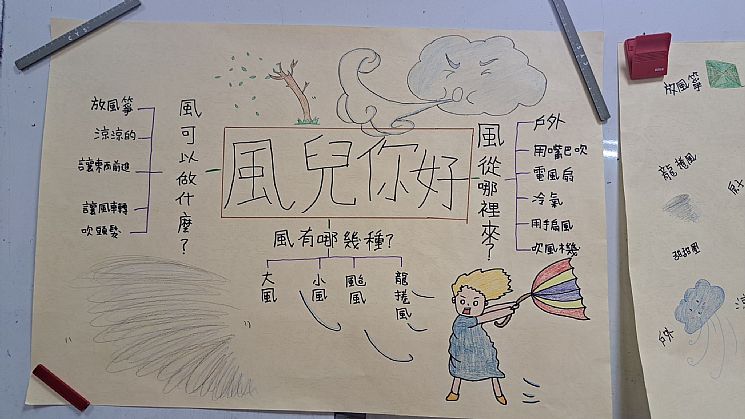 風兒你好
風可以做什麼？
放風箏
涼涼的
讓東西前進
讓風車轉
吹頭髮
風從哪裡來？
戶外
用嘴巴吹
電風扇
冷氣
用搧風
吹風機
風有哪幾種？
大風
小風
颱風
龍捲風
放風箏
龍捲風
戶外